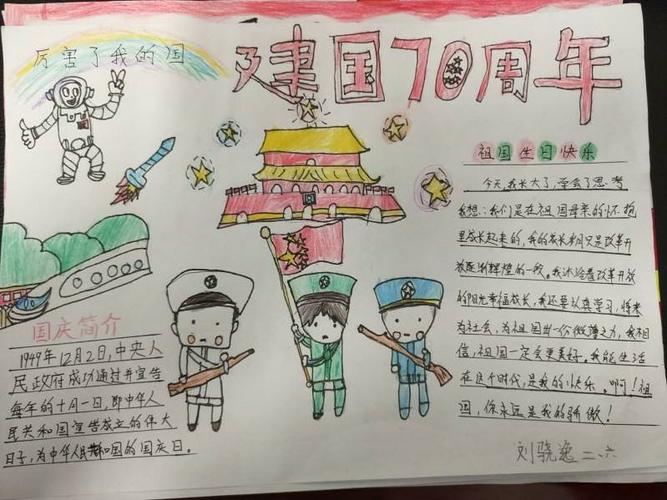 厉害了我的国
建国70周年
祖国生日快乐
今天,我长大了,学会了思考
我想:我们是在祖国母亲的怀抱
里成长起来的,我的成长岁月又是改革开
放逐渐辉煌的一段。我沐浴着改革开放
的阳光幸福成长,我还要认真学习,将来
为社会,为祖国出一份微薄之力,我相
信,祖国一定会更美好。我能生活
在这个时代,是我的快乐。啊!祖
国,你永远是我的骄傲!
刘骁逸 二.六
国庆简介
1949年12月2日,中央人
民政府成功通过并宣告
每年的十月一日,即中华人
民共和国宣告成立的伟大
日子,为中华人民共和国的国庆日。